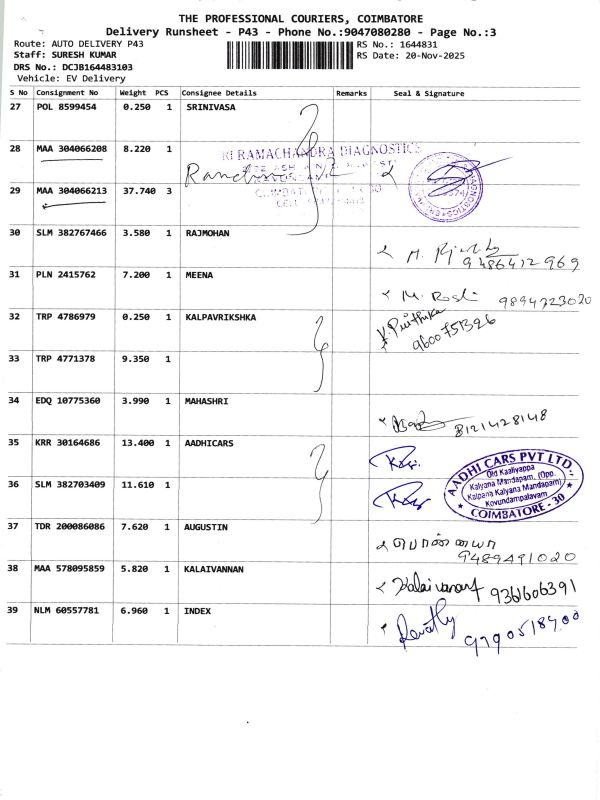 THE PROFESSIONAL COURIERS, COIMBATORE
Delivery Runsheet - P43 - Phone No.:9047080280 - Page No.:3
Route: AUTO DELIVERY P43
Staff: SURESH KUMAR
DRS No.: DCJB164483103
Vehicle: EV Delivery
RS No.: 1644831
RS Date: 20-Nov-2025
S No Consignment No Weight PCS Consignee Details Remarks Seal & Signature
27 POL 8599454 0.250 1 SRINIVASA
28 MAA 304066208 8.220 1
RI RAMACHANDRA DIAGNOSTICS
29 MAA 304066213 37.740 3
30 SLM 382767466 3.580 1 RAJMOHAN
9486412969
31 PLN 2415762 7.200 1 MEENA
M. Roshi 9894723020
32 TRP 4786979 0.250 1 KALPAVRIKSHKA
9600751326
33 TRP 4771378 9.350 1
34 EDQ 10775360 3.990 1 MAHASHRI
8121428148
35 KRR 30164686 13.400 1 AADHICARS
AADHI CARS PVT LTD.
Old Kaaliyappa
Kalyana Mandapam, (Opp.
Kalpana Kalyana Mandapam)
Kovundampalavam
COIMBATORE - 30
36 SLM 382703409 11.610 1
37 TDR 200086086 7.620 1 AUGUSTIN
பொன்னையா
9489491020
38 MAA 578095859 5.820 1 KALAIVANNAN
Kalaivanan 9361606391
39 NLM 60557781 6.960 1 INDEX
Revathy 9790518900